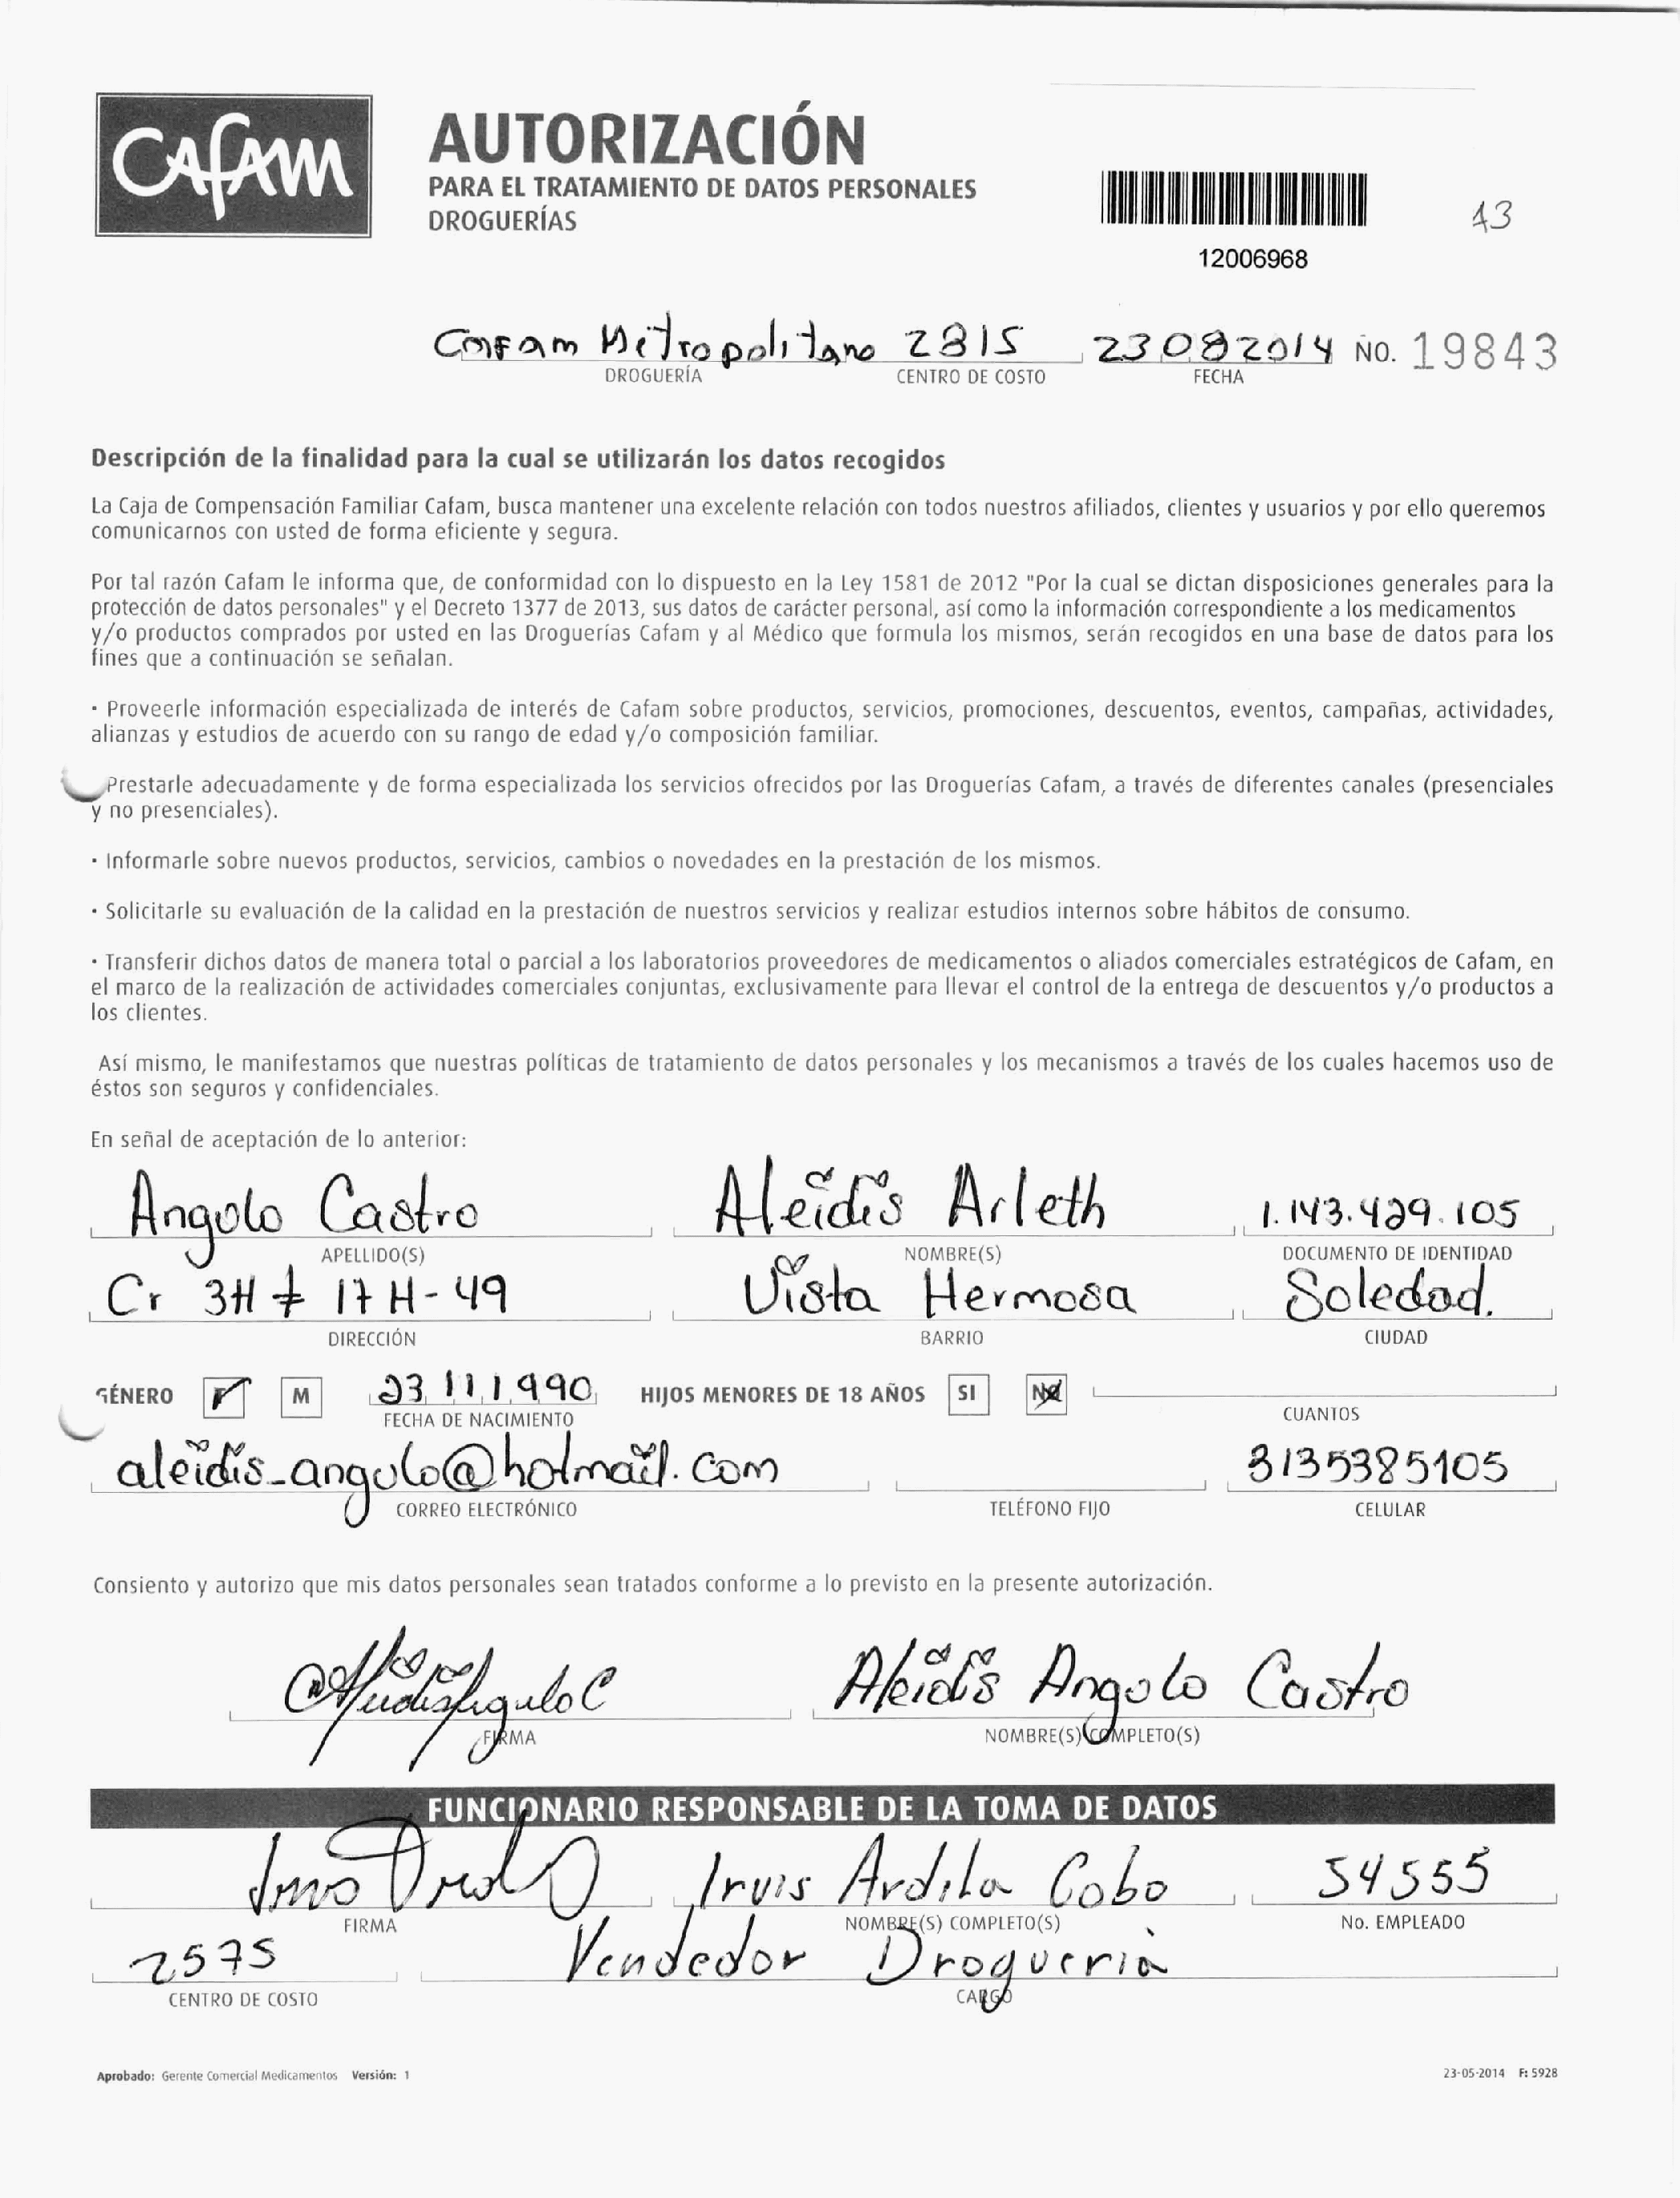 CAFAM
AUTORIZACIÓN
PARA EL TRATAMIENTO DE DATOS PERSONALES
DROGUERÍAS
12006968
13
Cafam Metropolitano 2815 23082014 NO. 19843
DROGUERÍA CENTRO DE COSTO FECHA
Descripción de la finalidad para la cual se utilizarán los datos recogidos
La Caja de Compensación Familiar Cafam, busca mantener una excelente relación con todos nuestros afiliados, clientes y usuarios y por ello queremos
comunicarnos con usted de forma eficiente y segura.
Por tal razón Cafam le informa que, de conformidad con lo dispuesto en la Ley 1581 de 2012 "Por la cual se dictan disposiciones generales para la
protección de datos personales" y el Decreto 1377 de 2013, sus datos de carácter personal, así como la información correspondiente a los medicamentos
y/o productos comprados por usted en las Droguerías Cafam y al Médico que formula los mismos, serán recogidos en una base de datos para los
fines que a continuación se señalan.
· Proveerle información especializada de interés de Cafam sobre productos, servicios, promociones, descuentos, eventos, campañas, actividades,
alianzas y estudios de acuerdo con su rango de edad y/o composición familiar.
Prestarle adecuadamente y de forma especializada los servicios ofrecidos por las Droguerías Cafam, a través de diferentes canales (presenciales
y no presenciales).
· Informarle sobre nuevos productos, servicios, cambios o novedades en la prestación de los mismos.
· Solicitarle su evaluación de la calidad en la prestación de nuestros servicios y realizar estudios internos sobre hábitos de consumo.
· Transferir dichos datos de manera total o parcial a los laboratorios proveedores de medicamentos o aliados comerciales estratégicos de Cafam, en
el marco de la realización de actividades comerciales conjuntas, exclusivamente para llevar el control de la entrega de descuentos y/o productos a
los clientes.
Así mismo, le manifestamos que nuestras políticas de tratamiento de datos personales y los mecanismos a través de los cuales hacemos uso de
éstos son seguros y confidenciales.
En señal de aceptación de lo anterior:
Angulo Castro Aleidis Arleth 1.143.429.105
APELLIDO(S) NOMBRE(S) DOCUMENTO DE IDENTIDAD
Cr 3H # 17H-49 Vista Hermosa Soledad.
DIRECCIÓN BARRIO CIUDAD
GÉNERO F M 23111990 HIJOS MENORES DE 18 AÑOS SI NO
FECHA DE NACIMIENTO CUANTOS
aleidis_angulo@hotmail.com 3135385105
CORREO ELECTRÓNICO TELÉFONO FIJO CELULAR
Consiento y autorizo que mis datos personales sean tratados conforme a lo previsto en la presente autorización.
Aleidis Angulo Castro
FIRMA NOMBRE(S) COMPLETO(S)
FUNCIONARIO RESPONSABLE DE LA TOMA DE DATOS
Irvis Ardila Cobo 54555
FIRMA NOMBRE(S) COMPLETO(S) No. EMPLEADO
2575 Vendedor Drogueria
CENTRO DE COSTO CARGO
Aprobado: Gerente Comercial Medicamentos Versión: 1 23-05-2014 F: 5928